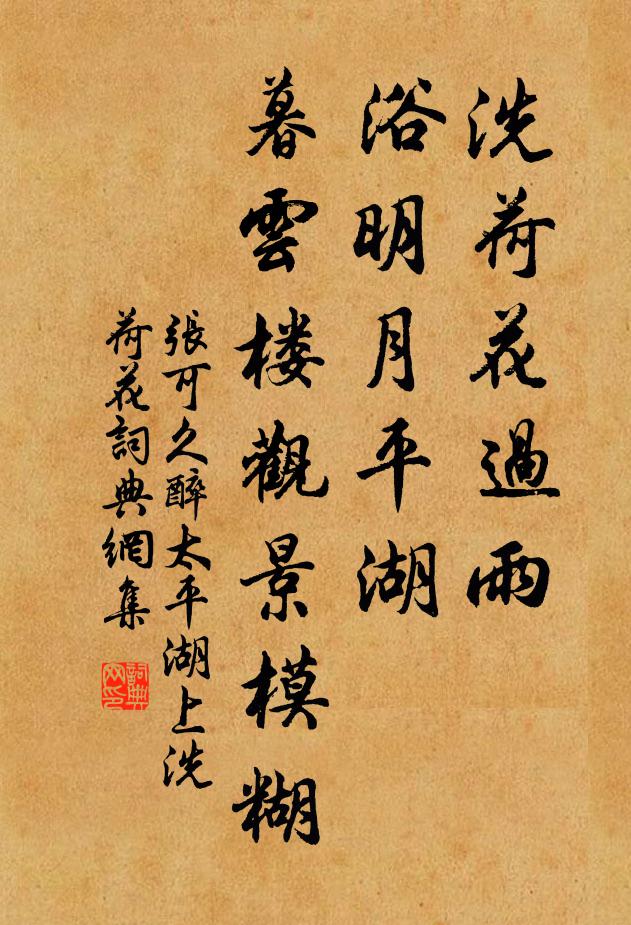 洗荷花過雨
浴明月平湖
暮雲楼觀景模糊
張可久醉太平湖上洗
荷花詞典網集
詞典
网印